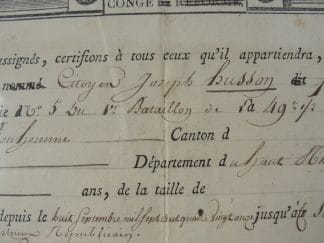 CONGÉ DE RÉFORME
ssignés, certifions à tous ceux qu'il appartiendra,
nommé Citoyen Joseph husson dit
ie N.º 5 du 1.er Bataillon de la 49.e
onhomme
Canton d
Département du haut Rh
ans, de la taille de
depuis le huit Septembre mil sept cent quatre vingt onze jusqu'à ce
Républicain.